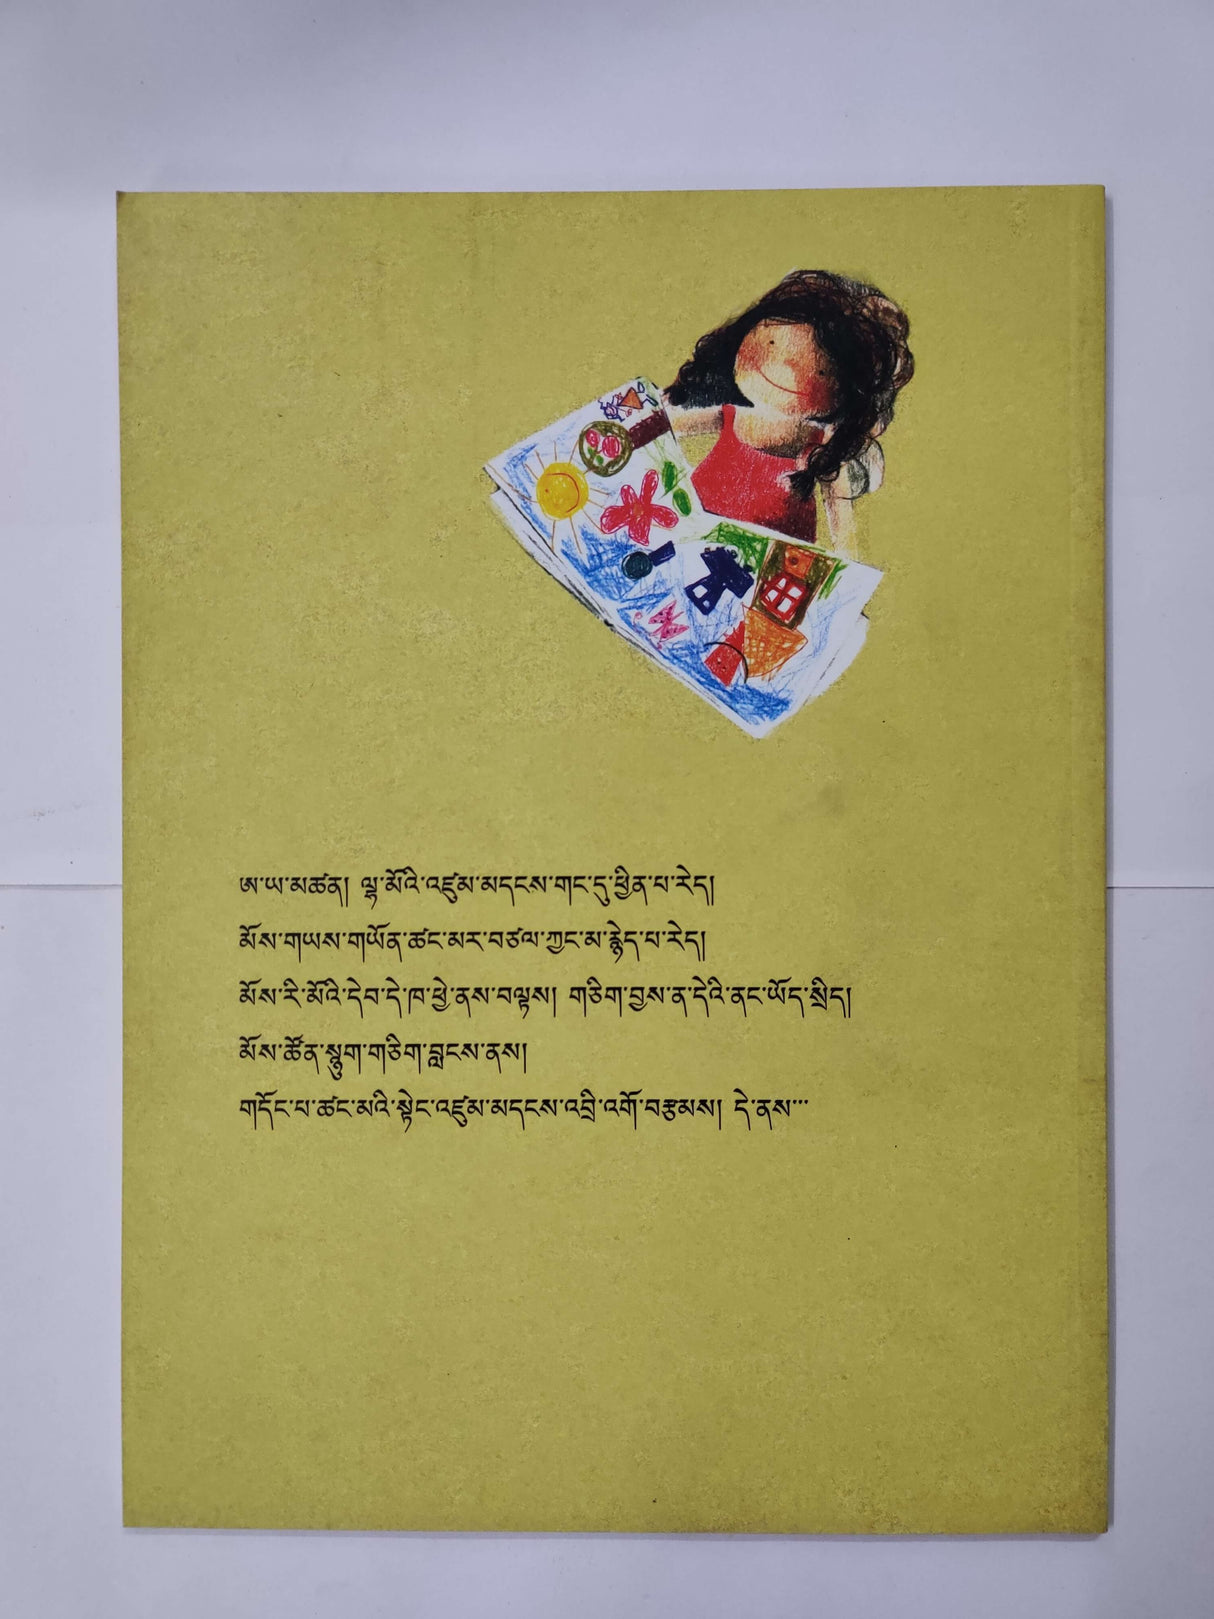 ཨ་ཡ་མཚན། ལྷ་མོའི་འཛུམ་མདངས་གང་དུ་ཕྱིན་པ་རེད།
མོས་གཡས་གཡོན་ཚང་མར་བཙལ་ཀྱང་མ་རྙེད་པ་རེད།
མོས་རི་མོའི་དེབ་དེ་ཁ་ཕྱེ་ནས་བལྟས། གཅིག་བྱས་ན་དེའི་ནང་ཡོད་སྲིད།
མོས་ཚོན་སྨྱུག་གཅིག་བླངས་ནས།
གདོང་པ་ཚང་མའི་སྟེང་འཛུམ་མདངས་འབྲི་འགོ་བརྩམས། དེ་ནས་···